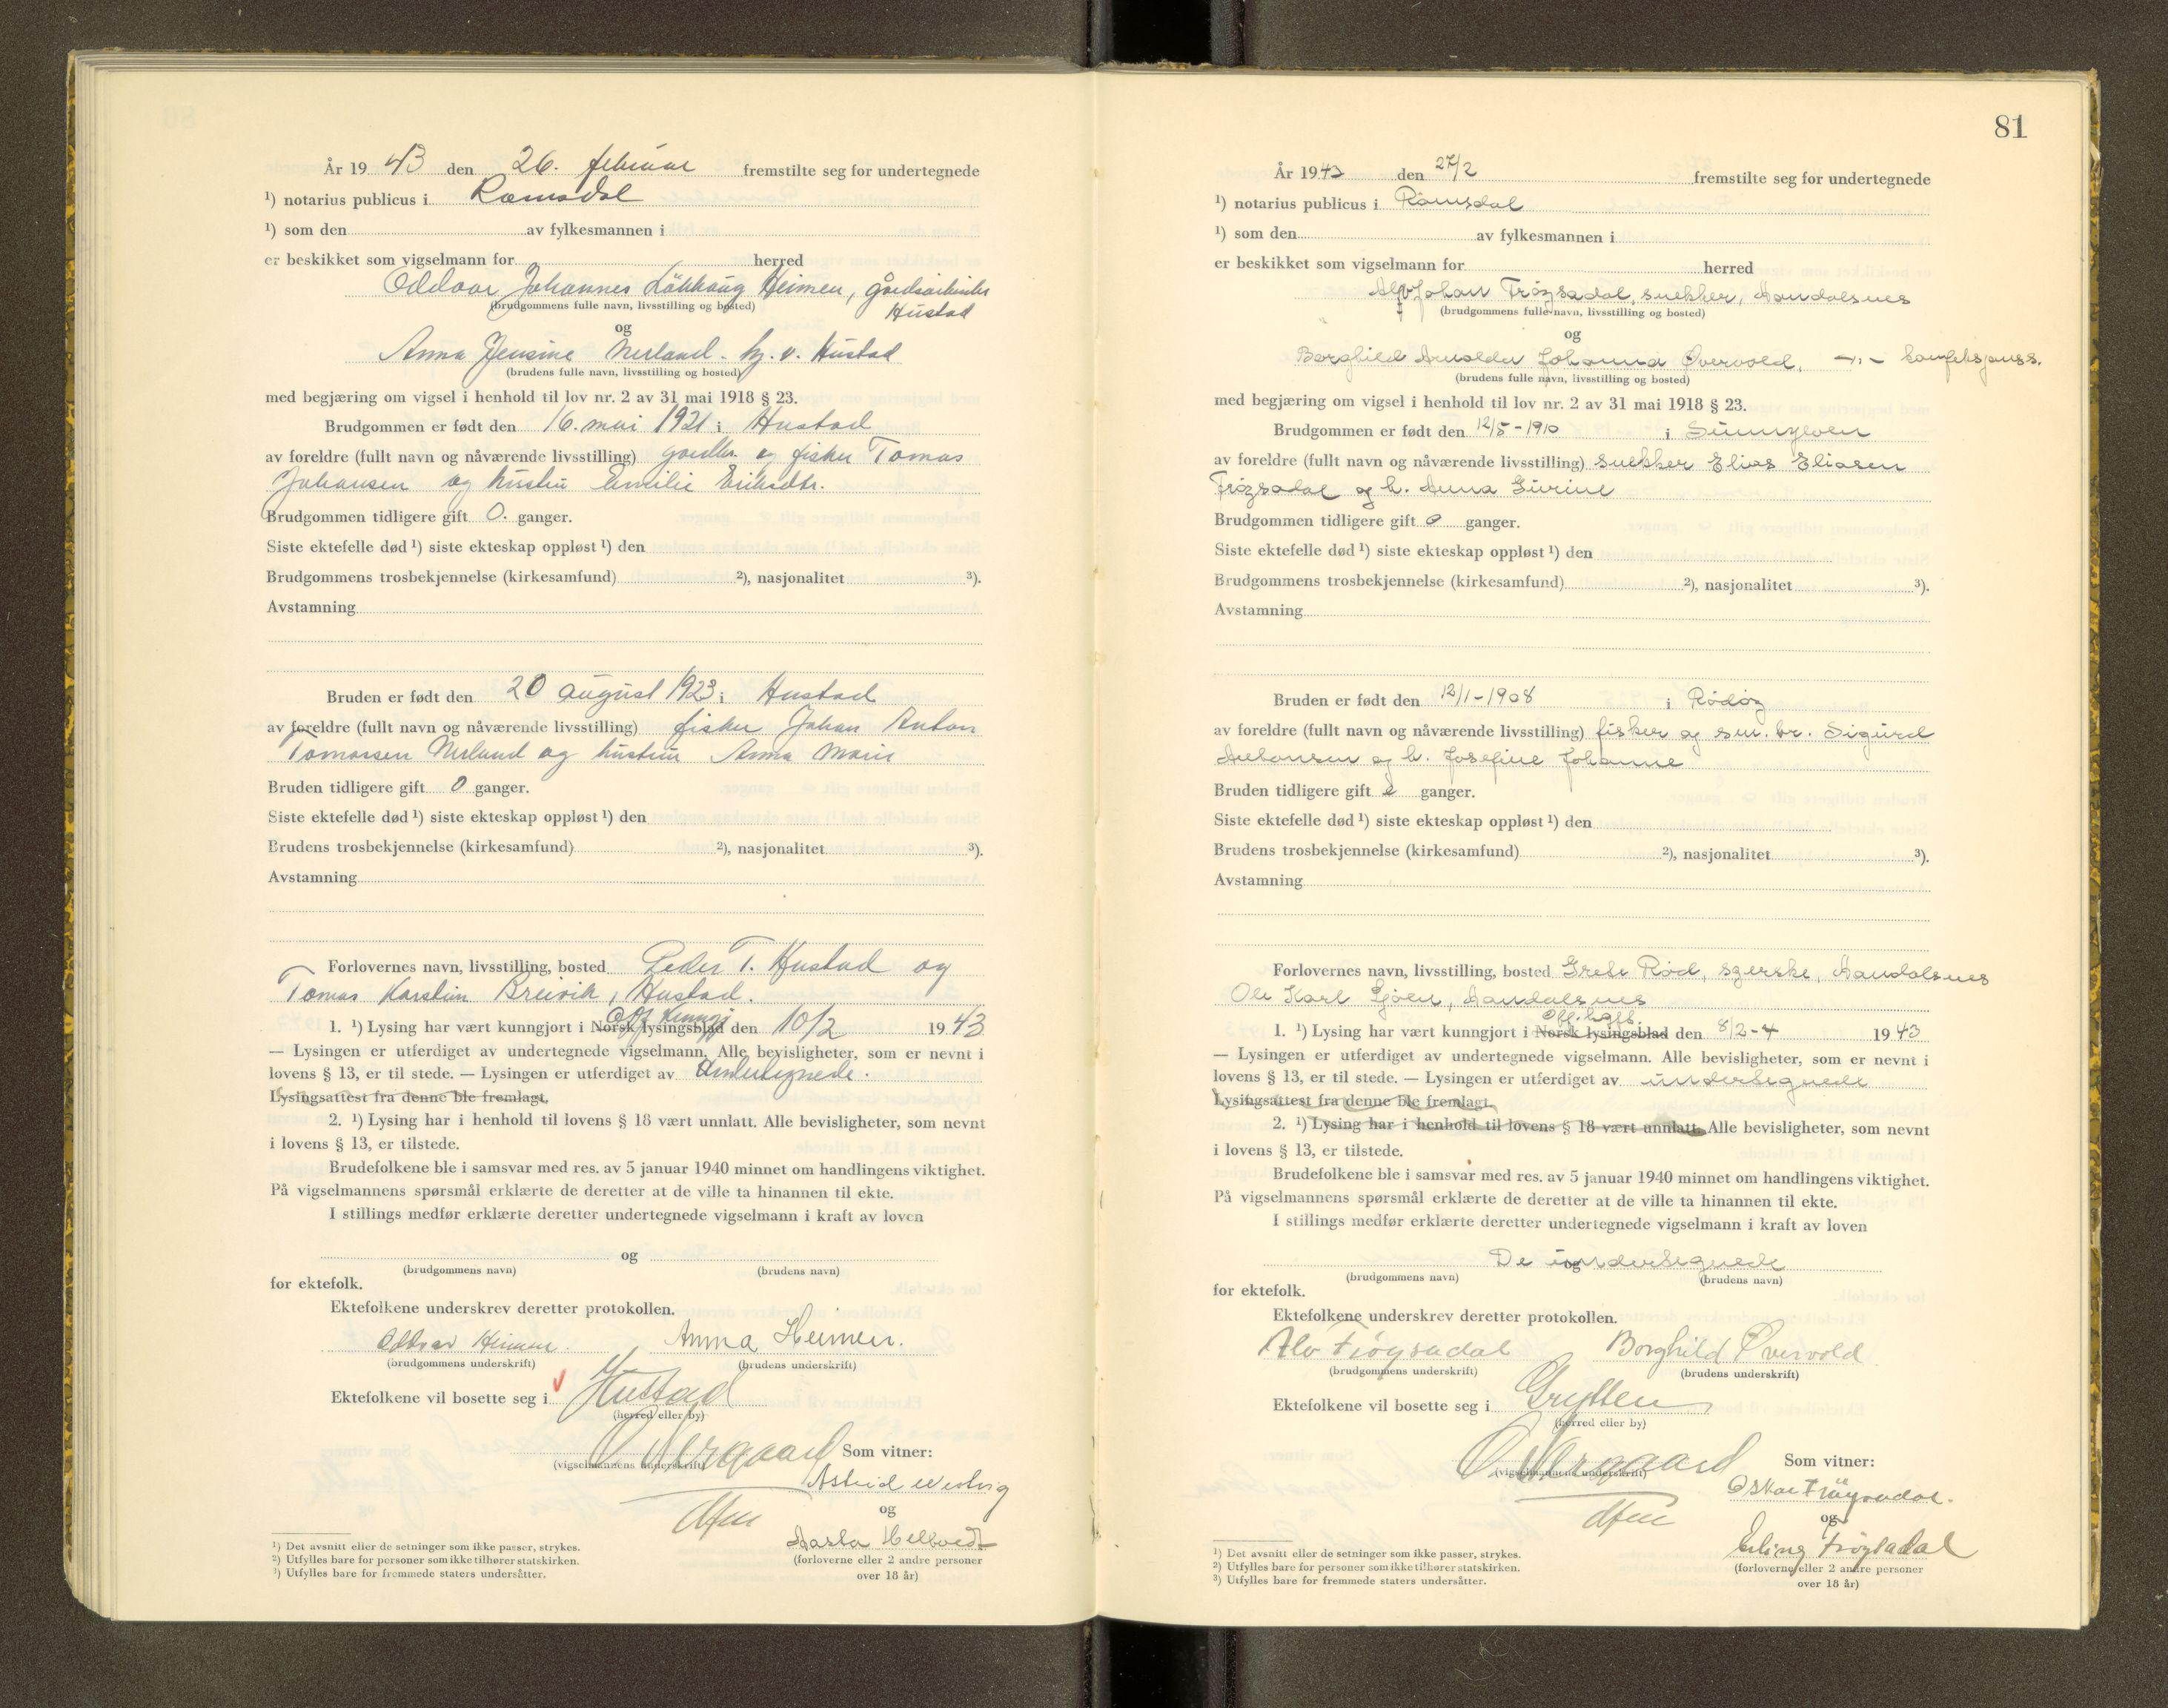 År 19 43 den 26. februar fremstilte seg for undertegnede
¹) notarius publicus i Romsdal
¹) som den av fylkesmannen i
er beskikket som vigselmann for herred
Oddvar Johannes Heimen, gårdsarbeider
Hustad
(brudgommens fulle navn, livsstilling og bosted)
og
Anna Jensine Nerland - hj. v. Hustad
(brudens fulle navn, livsstilling og bosted)
med begjæring om vigsel i henhold til lov nr. 2 av 31 mai 1918 § 23.
Brudgommen er født den 16. mai 1921 i Hustad
av foreldre (fullt navn og nåværende livsstilling) gardbr. og fisker Tomas
Johansen og hustru Emilie Eriksdtr.
Brudgommen tidligere gift 0. ganger.
Siste ektefelle død ¹) siste ekteskap oppløst ¹) den
Brudgommens trosbekjennelse (kirkesamfund) ²), nasjonalitet ³).
Avstamning
Bruden er født den 20 august 1923 i Hustad
av foreldre (fullt navn og nåværende livsstilling) fisker Johan Anton
Tomassen Nerland og hustru Anna Marie
Bruden tidligere gift 0 ganger.
Siste ektefelle død ¹) siste ekteskap oppløst ¹) den
Brudens trosbekjennelse (kirkesamfund) ²), nasjonalitet ³).
Avstamning
Forlovernes navn, livsstilling, bosted Peder T. Hustad og
Tomas Karstein Breivik, Hustad.
Off. kunngj
1. ¹) Lysing har vært kunngjort i Norsk lysingsblad den 10/2 19 43
— Lysingen er utferdiget av undertegnede vigselmann. Alle bevisligheter, som er nevnt i
lovens § 13, er til stede. — Lysingen er utferdiget av undertegnede.
Lysingsattest fra denne ble fremlagt.
2. ¹) Lysing har i henhold til lovens § 18 vært unnlatt. Alle bevisligheter, som nevnt
i lovens § 13, er tilstede.
Brudefolkene ble i samsvar med res. av 5 januar 1940 minnet om handlingens viktighet.
På vigselmannens spørsmål erklærte de deretter at de ville ta hinannen til ekte.
I stillings medfør erklærte deretter undertegnede vigselmann i kraft av loven
og
(brudgommens navn) (brudens navn)
for ektefolk.
Ektefolkene underskrev deretter protokollen.
Oddvar Heimen. Anna Heimen.
(brudgommens underskrift) (brudens underskrift)
Ektefolkene vil bosette seg i Hustad
(herred eller by)
Som vitner:
(vigselmannens underskrift)
Astrid
og
Aasta
(forloverne eller 2 andre personer
over 18 år)
¹) Det avsnitt eller de setninger som ikke passer, strykes.
²) Utfylles bare for personer som ikke tilhører statskirken.
³) Utfylles bare for fremmede staters undersåtter.
81
År 19 43 den 27/2 fremstilte seg for undertegnede
¹) notarius publicus i Romsdal
¹) som den av fylkesmannen i
er beskikket som vigselmann for herred
Alv Johan Frøysadal, snekker, Aandalsnes
(brudgommens fulle navn, livsstilling og bosted)
og
Borghild Arnolda Johanna Øvervold, -"-
(brudens fulle navn, livsstilling og bosted)
med begjæring om vigsel i henhold til lov nr. 2 av 31 mai 1918 § 23.
Brudgommen er født den 12/5-1910 i Sunnylven
av foreldre (fullt navn og nåværende livsstilling) snekker Elias Eliasen
Frøysadal og h. Anna Gurine
Brudgommen tidligere gift 0 ganger.
Siste ektefelle død ¹) siste ekteskap oppløst ¹) den
Brudgommens trosbekjennelse (kirkesamfund) ²), nasjonalitet ³).
Avstamning
Bruden er født den 12/1-1908 i Rødøy
av foreldre (fullt navn og nåværende livsstilling) fisker og sm. br. Sigurd
Antonsen og h. Josefine Johanne
Bruden tidligere gift ganger.
Siste ektefelle død ¹) siste ekteskap oppløst ¹) den
Brudens trosbekjennelse (kirkesamfund) ²), nasjonalitet ³).
Avstamning
Forlovernes navn, livsstilling, bosted Grete Rød, syerske, Aandalsnes
Ole Karl Gjøen, Aandalsnes
1. ¹) Lysing har vært kunngjort i Norsk lysingsblad den 8/2-4 19 43
— Lysingen er utferdiget av undertegnede vigselmann. Alle bevisligheter, som er nevnt i
lovens § 13, er til stede. — Lysingen er utferdiget av undertegnede
Lysingsattest fra denne ble fremlagt.
2. ¹) Lysing har i henhold til lovens § 18 vært unnlatt. Alle bevisligheter, som nevnt
i lovens § 13, er tilstede.
Brudefolkene ble i samsvar med res. av 5 januar 1940 minnet om handlingens viktighet.
På vigselmannens spørsmål erklærte de deretter at de ville ta hinannen til ekte.
I stillings medfør erklærte deretter undertegnede vigselmann i kraft av loven
De undertegnede
og
(brudgommens navn) (brudens navn)
for ektefolk.
Ektefolkene underskrev deretter protokollen.
Alv Frøysadal Borghild Øvervold
(brudgommens underskrift) (brudens underskrift)
Ektefolkene vil bosette seg i Grytten
(herred eller by)
Som vitner:
(vigselmannens underskrift)
Oskar Frøysadal.
og
Erling Frøysadal
(forloverne eller 2 andre personer
over 18 år)
¹) Det avsnitt eller de setninger som ikke passer, strykes.
²) Utfylles bare for personer som ikke tilhører statskirken.
³) Utfylles bare for fremmede staters undersåtter.